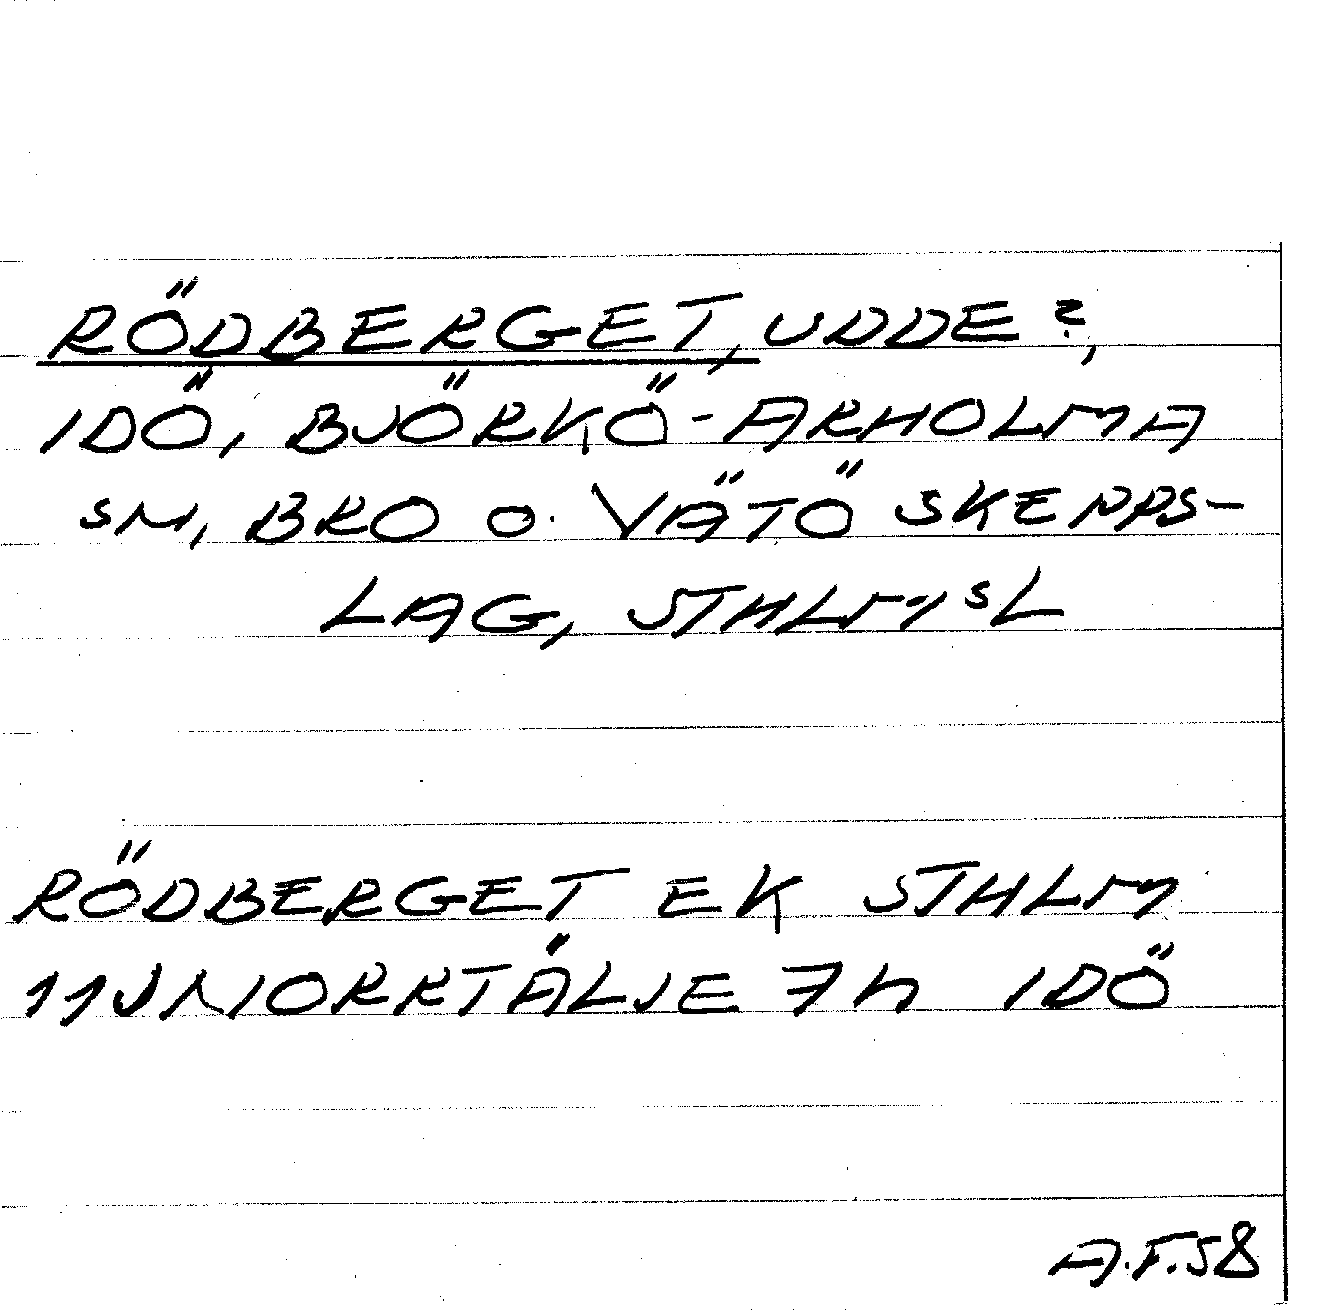 RÖDBERGET, UDDE?,
IDÖ, BJÖRKÖ-ARHOLMA
SN, BRO O. VÄTÖ SKEPPS-
LAG, STHLMSL
RÖDBERGET EK STHLM
11J NORRTÄLJE 7h IDÖ
A.F.58